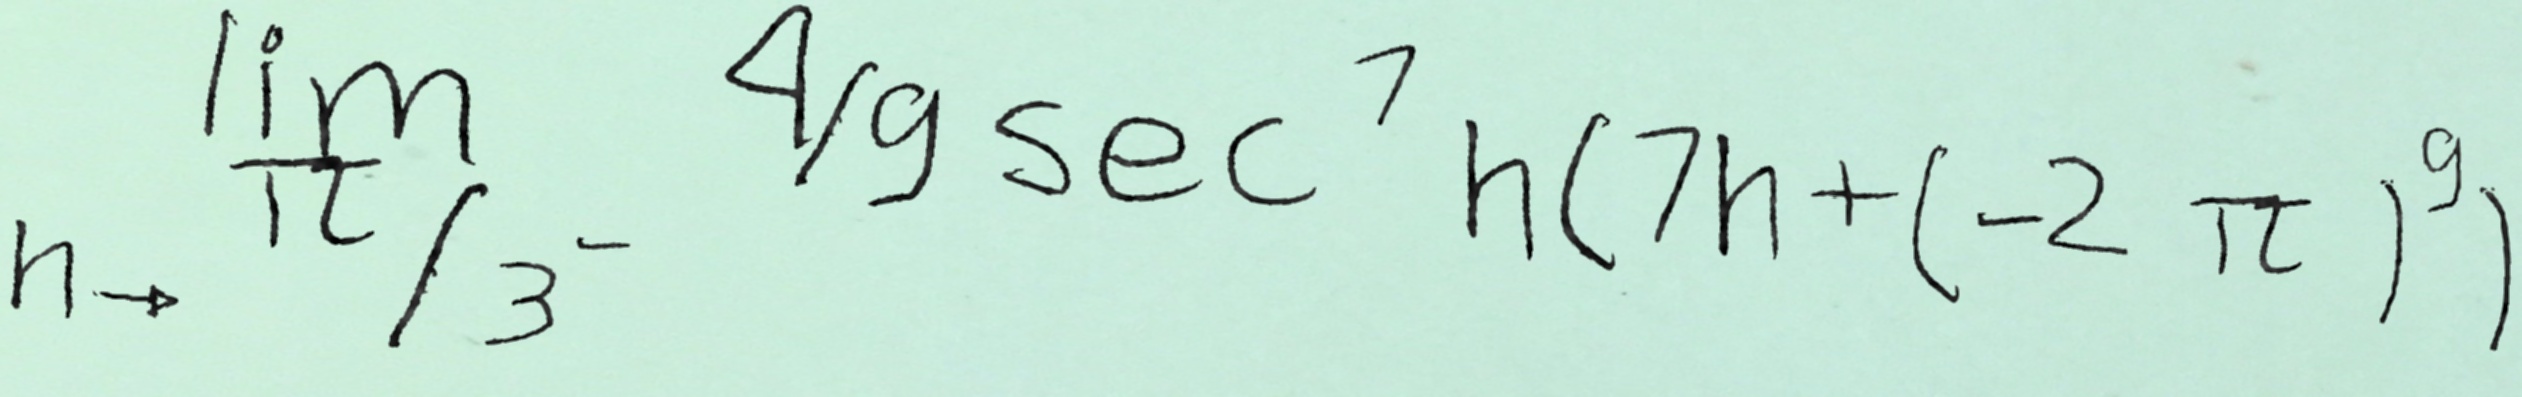 lim n→π/3⁻ 4/9 sec⁷ n(7n+(-2π)⁹)